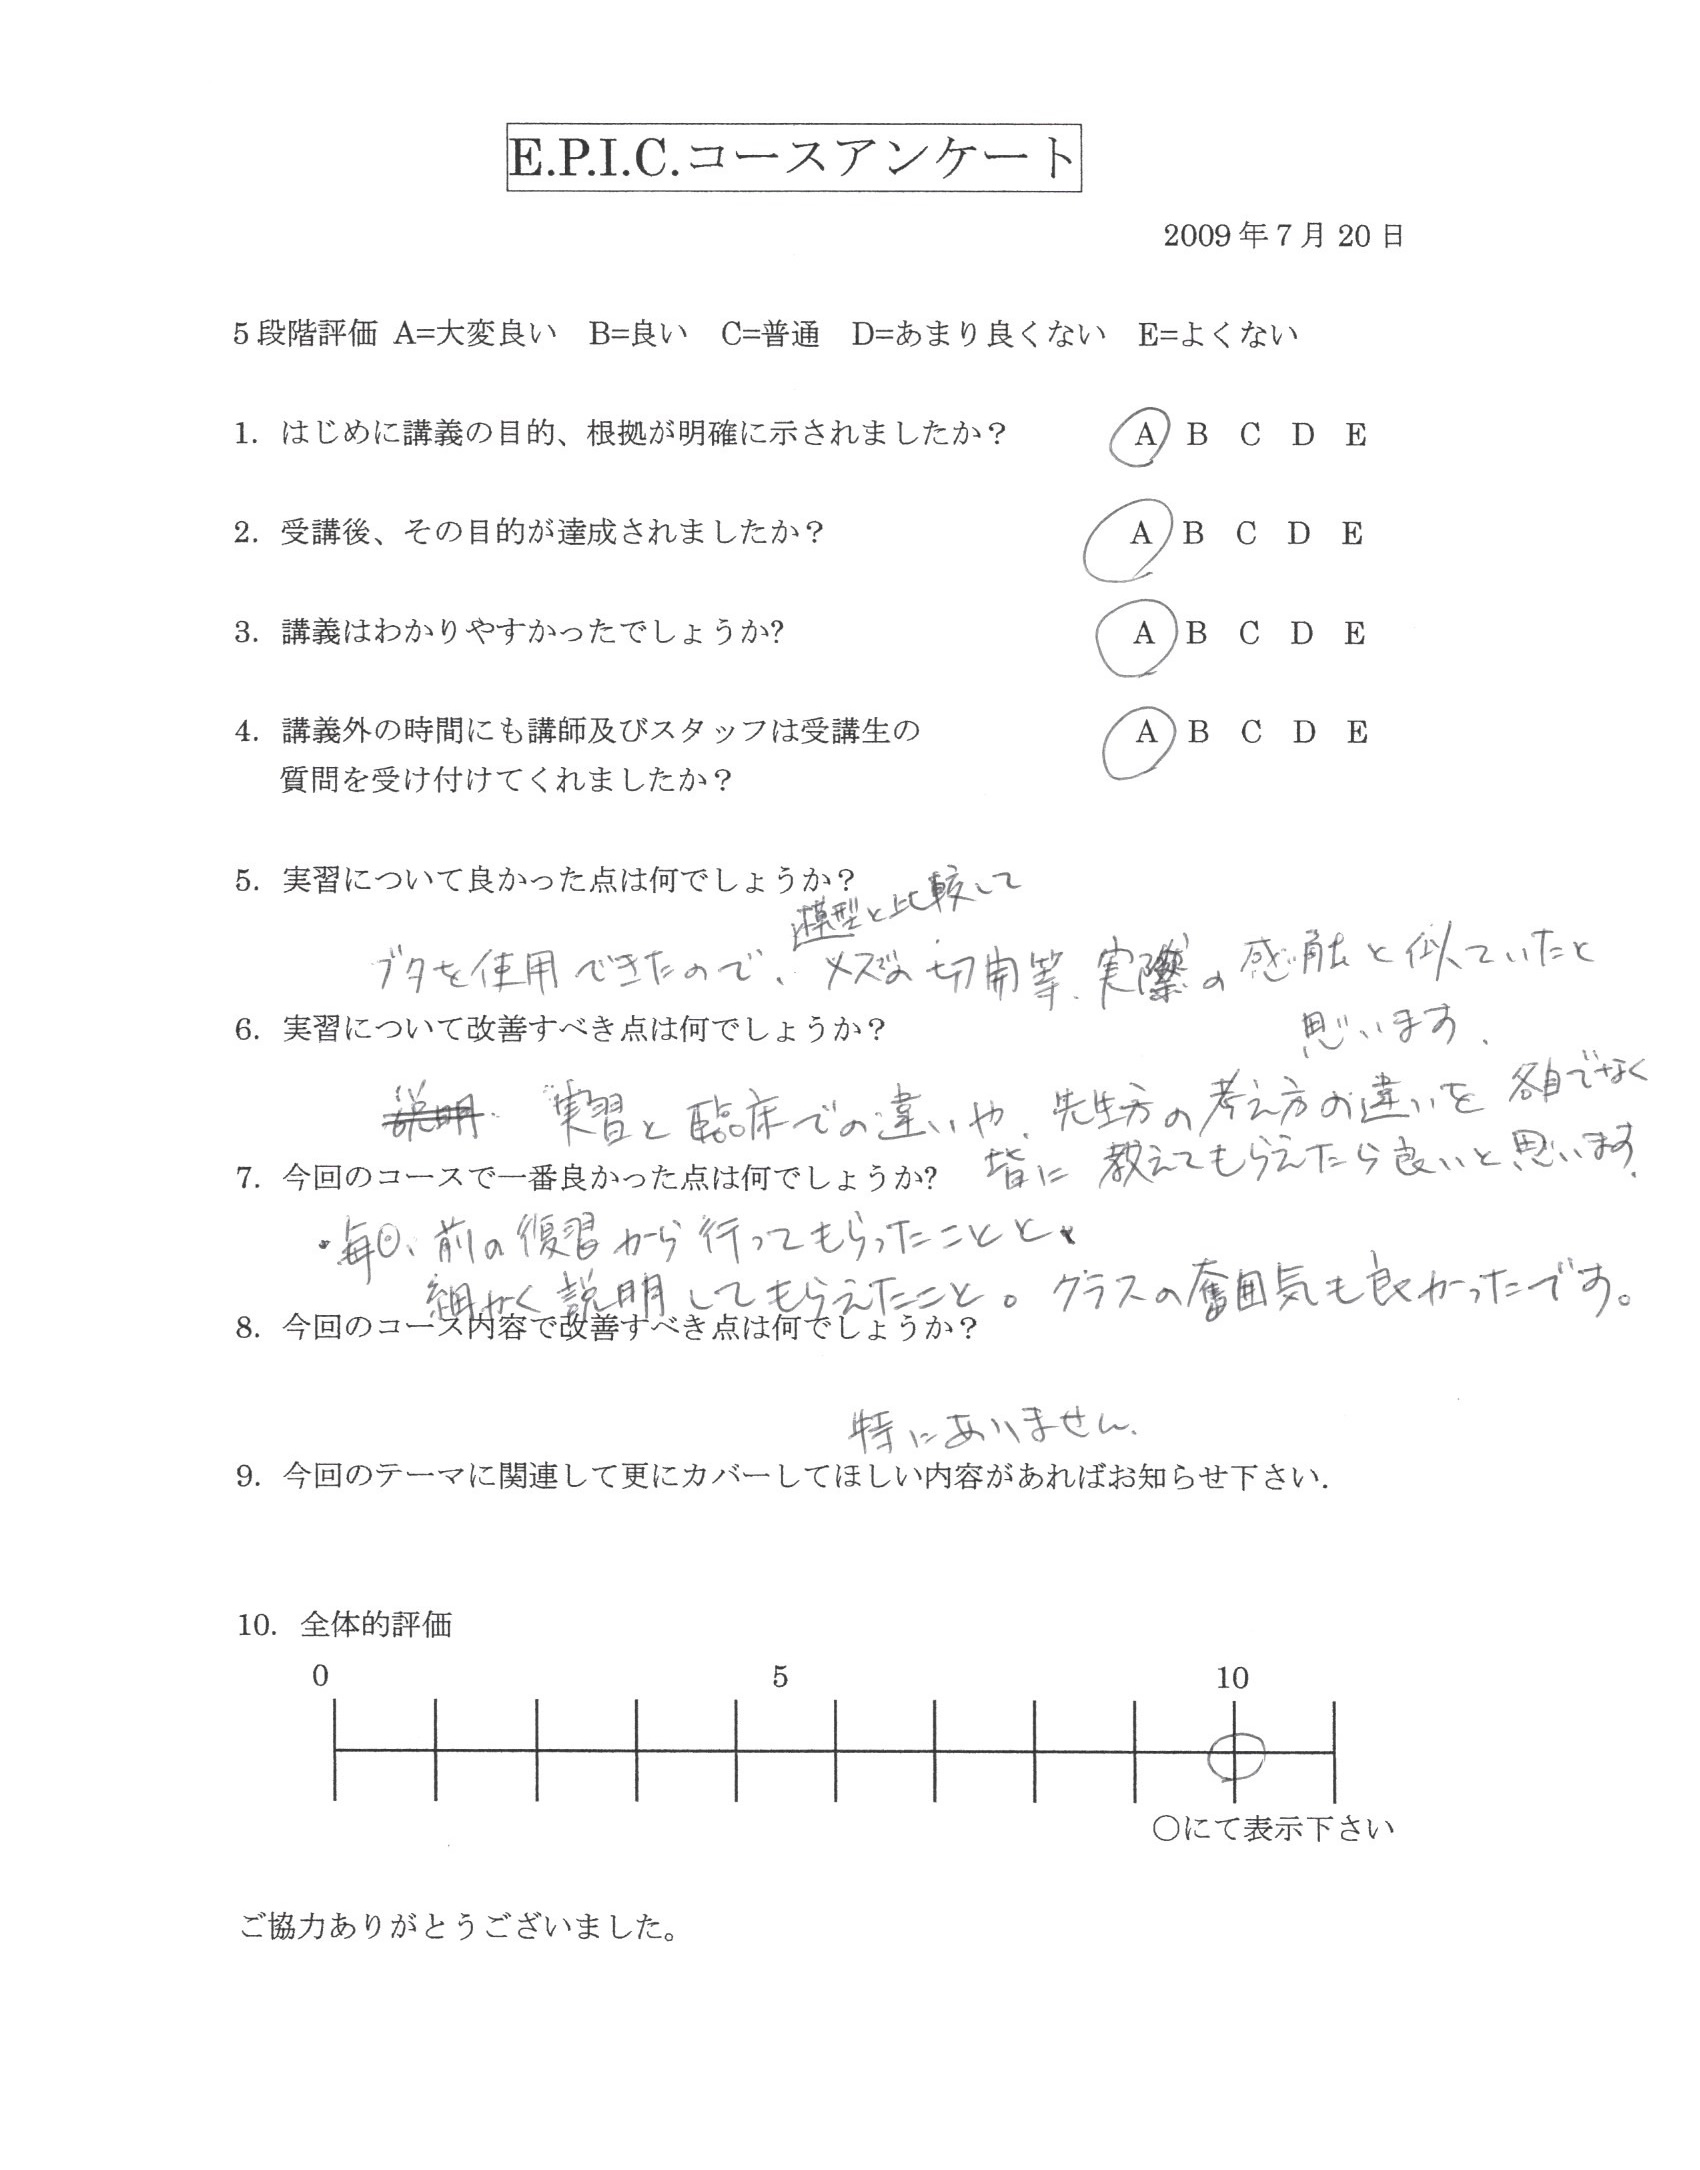 E.P.I.C.コースアンケート
2009年7月20日
5段階評価 A=大変良い B=良い C=普通 D=あまり良くない E=よくない
1. はじめに講義の目的、根拠が明確に示されましたか？ A B C D E
2. 受講後、その目的が達成されましたか？ A B C D E
3. 講義はわかりやすかったでしょうか? A B C D E
4. 講義外の時間にも講師及びスタッフは受講生の A B C D E
質問を受け付けてくれましたか？
5. 実習について良かった点は何でしょうか？
模型と比較して
ブタを使用できたので、メスでの切開等、実際の感触と似ていたと
思います.
6. 実習について改善すべき点は何でしょうか？
説明 実習と臨床での違いや、先生方の考え方の違いを各自でなく
皆に教えてもらえたら良いと思います.
7. 今回のコースで一番良かった点は何でしょうか?
・毎回、前の復習から行ってもらったことと、
細かく説明してもらえたこと。クラスの奮囲気も良かったです。
8. 今回のコース内容で改善すべき点は何でしょうか？
特にありません.
9. 今回のテーマに関連して更にカバーしてほしい内容があればお知らせ下さい.
10. 全体的評価
0 5 10
○にて表示下さい
ご協力ありがとうございました。